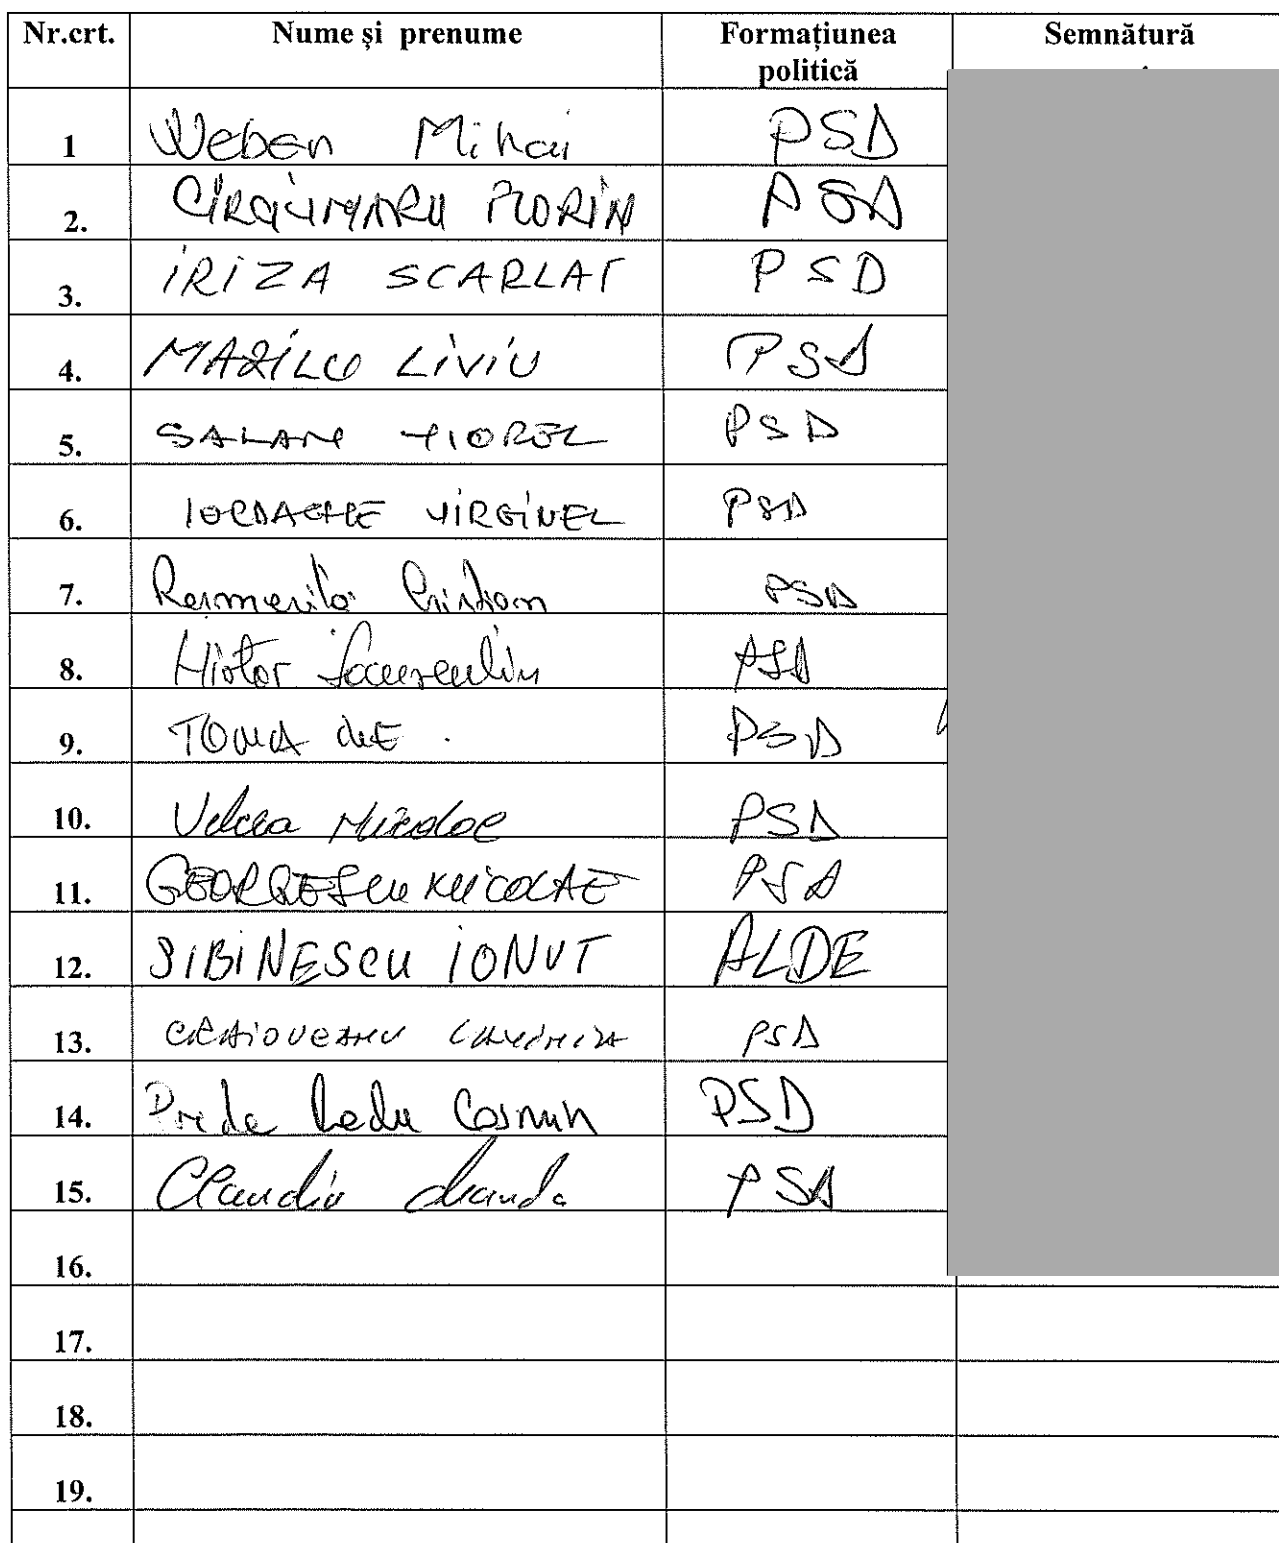 Nr.crt. Nume și prenume Formațiunea politică Semnătură
1 Weber Mihai PSD
2. CÎRCIUMARU FLORIN PSD
3. IRIZA SCARLAT PSD
4. MAZILU LIVIU PSD
5. SALAN VIOREL PSD
6. IORDACHE VIRGINEL PSD
7. PSD
8. PSD
9. TOMA PSD
10. PSD
11. GEORGESCU NICOLAE PSD
12. SIBINESCU IONUT ALDE
13. CRAIOVEANU PSD
14. Preda Radu Cosmin PSD
15. Claudiu Manda PSD
16.
17.
18.
19.